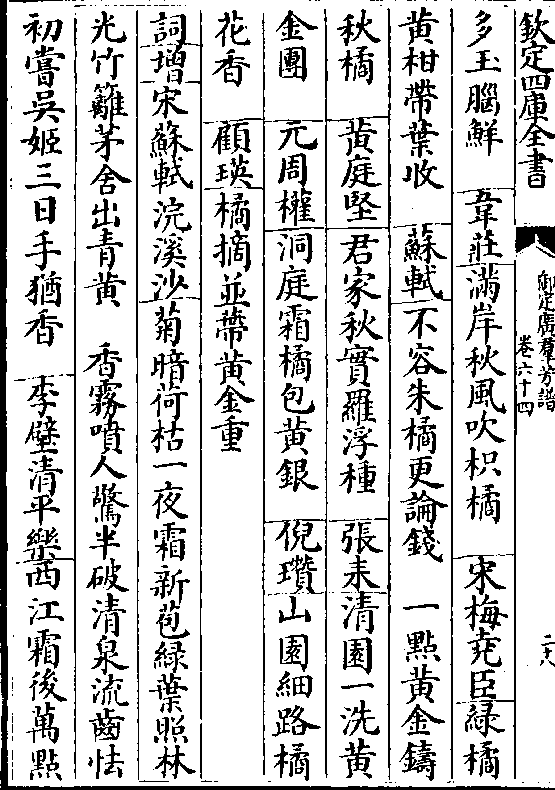 欽定四庫全書
御定廣羣芳譜
卷六十四
二八
多玉腦鮮　韋莊滿岸秋風吹枳橘　宋梅堯臣綠橘
黃柑帶葉收　蘇軾不容朱橘更論錢　一點黃金鑄
秋橘　黃庭堅君家秋實羅浮種　張耒清園一洗黃
金團　元周權洞庭霜橘包黃銀　倪瓚山園細路橘
花香　顧瑛橘摘並蔕黃金重
詞增宋蘇軾浣溪沙菊暗荷枯一夜霜新苞綠葉照林
光竹籬茅舍出青黃　香霧噴人驚半破清泉流齒怯
初嘗吳姬三日手猶香　李壁清平樂西江霜後萬點